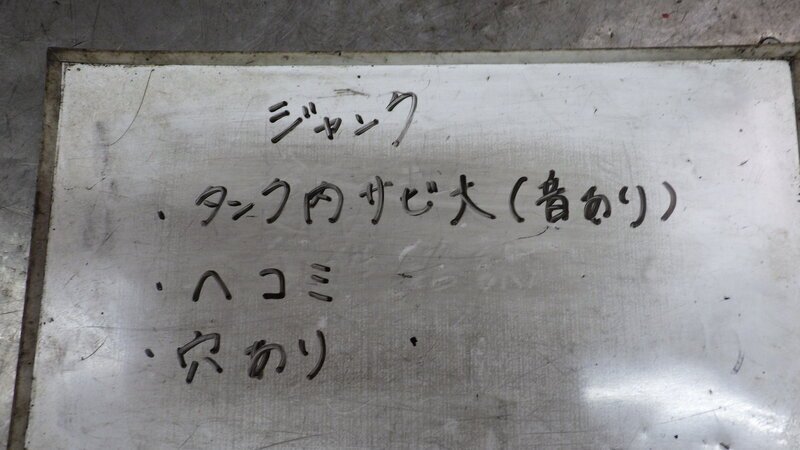 ジャンク
・タンク内サビ大(音あり)
・ヘコミ
・穴あり